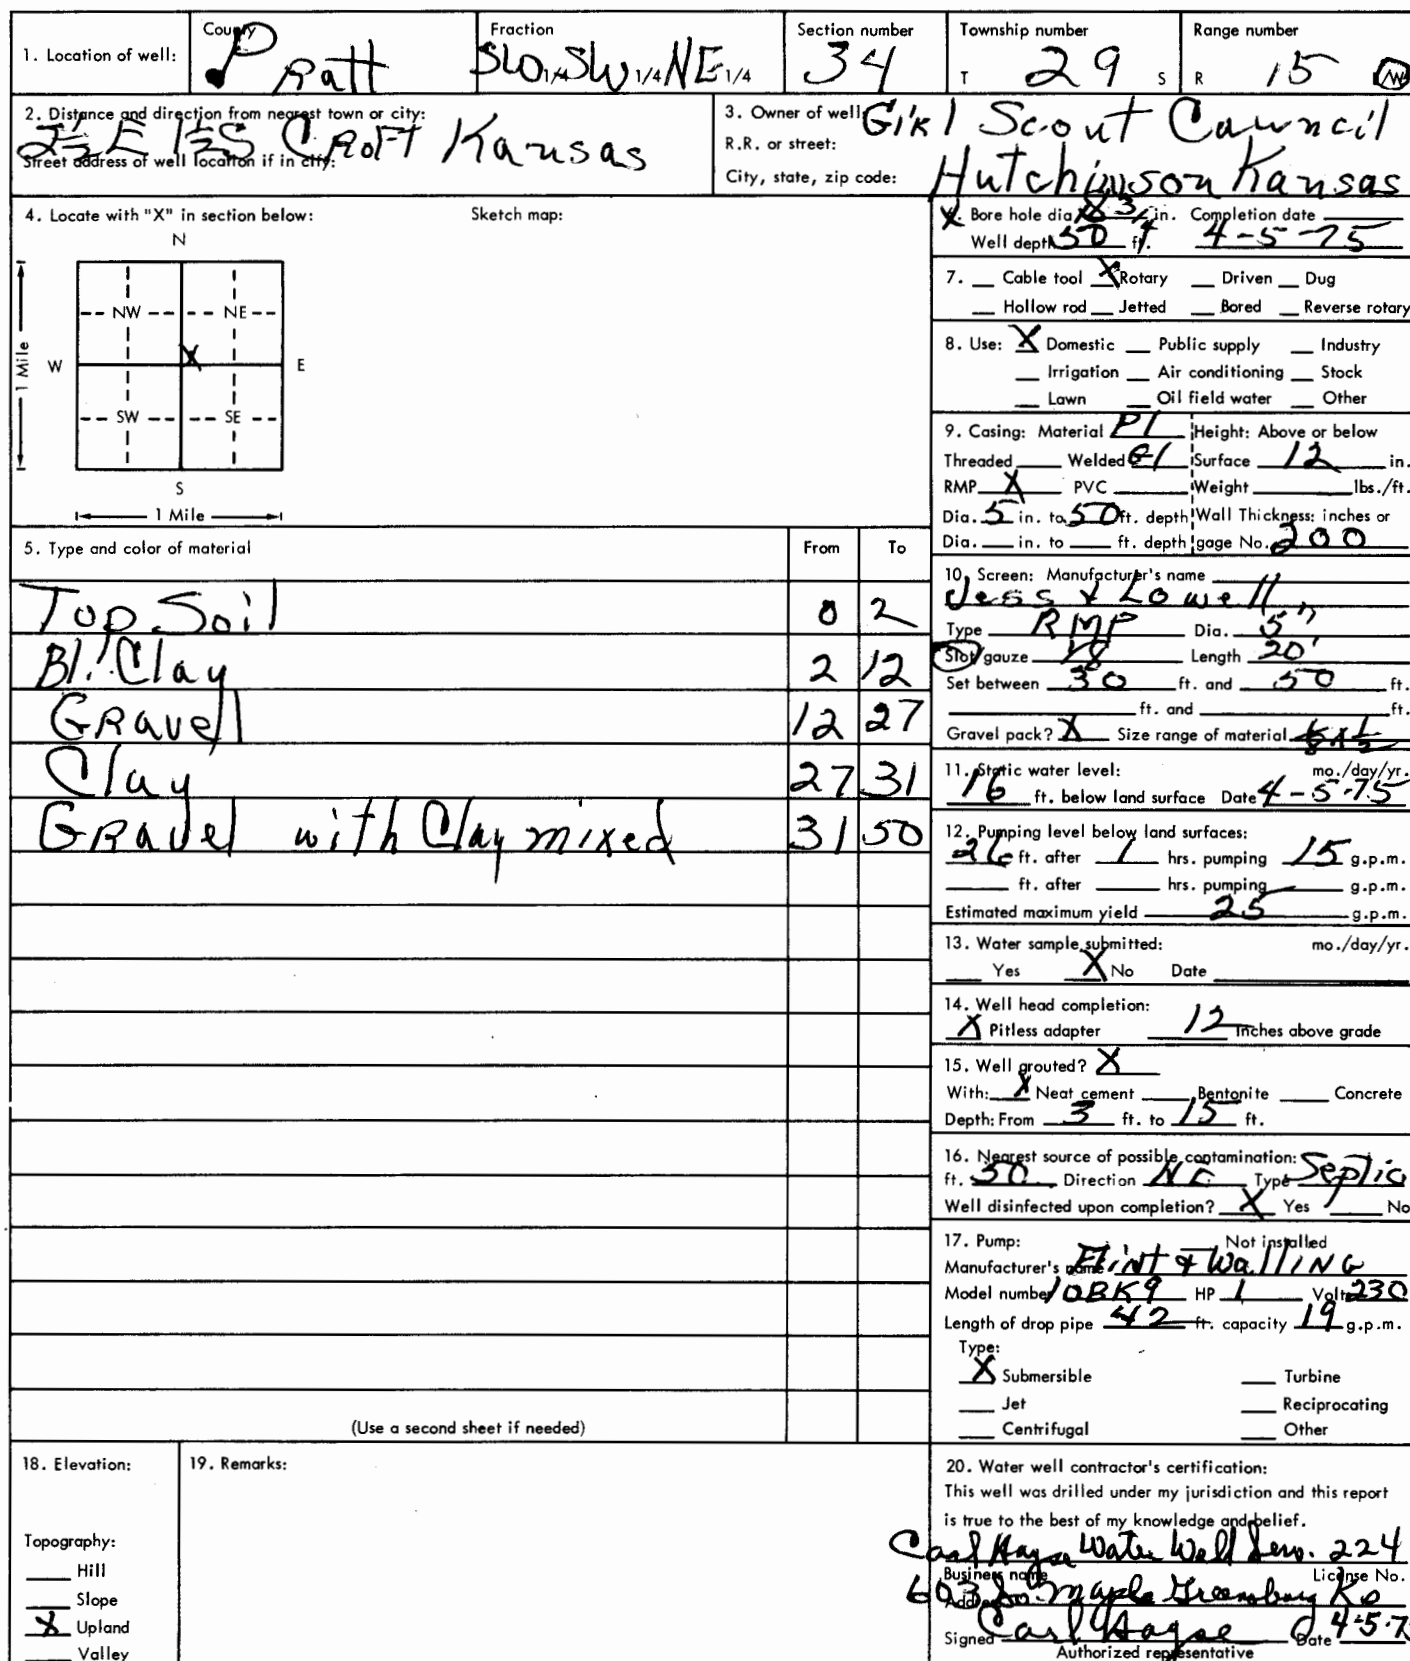 1. Location of well: County Pratt Fraction SW 1/4 SW 1/4 NE 1/4 Section number 34 Township number T 29 S Range number R 15 W
2. Distance and direction from nearest town or city: 2½ E 1½ S Croft Kansas
Street address of well location if in city:
3. Owner of well: Girl Scout Cawncil
R.R. or street:
City, state, zip code: Hutchinson Kansas
4. Locate with "X" in section below: Sketch map:
N
NW NE
W X E
SW SE
S
1 Mile
1 Mile
5. Type and color of material From To
Top Soil 0 2
Bl. Clay 2 12
Gravell 12 27
Clay 27 31
Gravel with Clay mixed 31 50
(Use a second sheet if needed)
Bore hole dia. 8 3/4 in. Completion date
Well depth 50 ft. 4-5-75
7. Cable tool X Rotary Driven Dug
Hollow rod Jetted Bored Reverse rotary
8. Use: X Domestic Public supply Industry
Irrigation Air conditioning Stock
Lawn Oil field water Other
9. Casing: Material Pl Height: Above or below
Threaded Welded Gl Surface 12 in.
RMP X PVC Weight lbs./ft.
Dia. 5 in. to 50 ft. depth Wall Thickness: inches or
Dia. in. to ft. depth gage No. 200
10. Screen: Manufacturer's name
Jess & Lowell
Type RMP Dia. 5"
Slot/gauze 1/8 Length 20'
Set between 30 ft. and 50 ft.
ft. and ft.
Gravel pack? X Size range of material 1/8 x 1/2
11. Static water level: mo./day/yr.
16 ft. below land surface Date 4-5-75
12. Pumping level below land surfaces:
26 ft. after 1 hrs. pumping 15 g.p.m.
ft. after hrs. pumping g.p.m.
Estimated maximum yield 25 g.p.m.
13. Water sample submitted: mo./day/yr.
Yes X No Date
14. Well head completion:
X Pitless adapter 12 Inches above grade
15. Well grouted? X
With: X Neat cement Bentonite Concrete
Depth: From 3 ft. to 15 ft.
16. Nearest source of possible contamination:
ft. 50 Direction NE Type Septic
Well disinfected upon completion? X Yes No
17. Pump: Not installed
Manufacturer's name Flint & Walling
Model number 10BK9 HP 1 Volt 230
Length of drop pipe 42 ft. capacity 19 g.p.m.
Type:
X Submersible Turbine
Jet Reciprocating
Centrifugal Other
18. Elevation:
Topography:
Hill
Slope
X Upland
Valley
19. Remarks:
20. Water well contractor's certification:
This well was drilled under my jurisdiction and this report
is true to the best of my knowledge and belief.
Carl Hayse Water Well Serv. 224
Business name License No.
603 So. Maple Greensburg Ks
Address
Signed Carl Hayse Date 4-5-7
Authorized representative